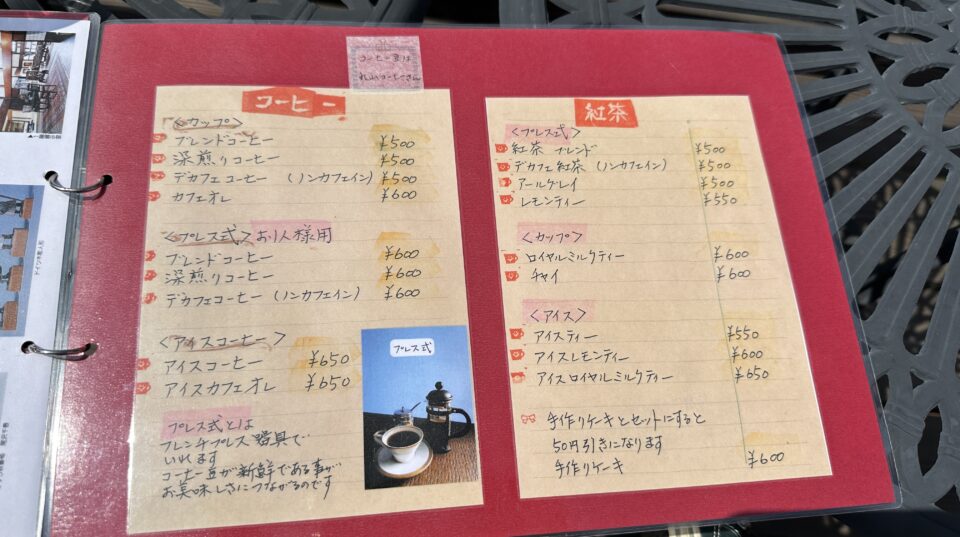 コーヒー豆は
コーヒー
<カップ>
ブレンドコーヒー ¥500
深煎りコーヒー ¥500
デカフェコーヒー (ノンカフェイン) ¥500
カフェオレ ¥600
<プレス式> お1人様用
ブレンドコーヒー ¥600
深煎りコーヒー ¥600
デカフェコーヒー (ノンカフェイン) ¥600
<アイスコーヒー>
アイスコーヒー ¥650
アイスカフェオレ ¥650
プレス式とは
フレンチプレス器具で
いれます
コーヒー豆が新鮮である事が
お美味しさにつながるのです
プレス式
紅茶
<プレス式>
紅茶 ブレンド ¥500
デカフェ紅茶 (ノンカフェイン) ¥500
アールグレイ ¥500
レモンティー ¥550
<カップ>
ロイヤルミルクティー ¥600
チャイ ¥600
<アイス>
アイスティー ¥550
アイスレモンティー ¥600
アイスロイヤルミルクティー ¥650
手作りケーキとセットにすると
50円引きになります
手作りケーキ ¥600